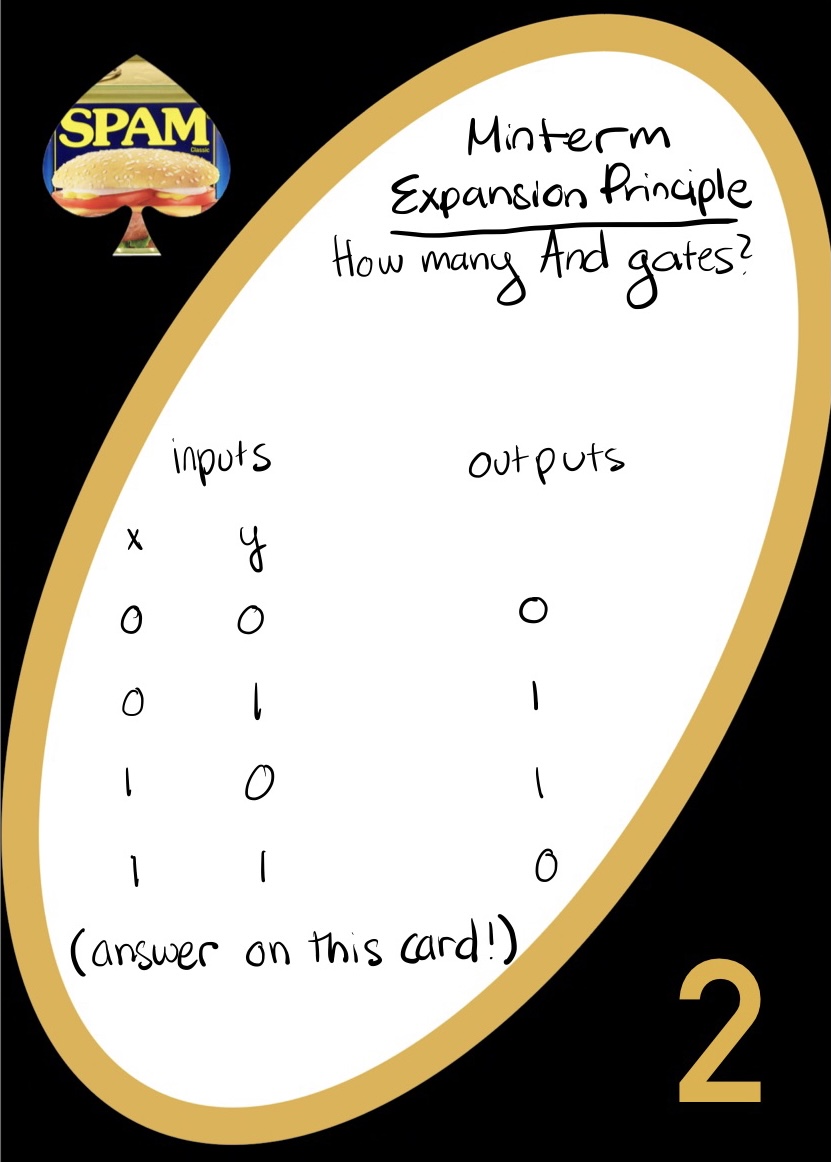 SPAM
Classic
Minterm
Expansion Principle
How many And gates?
inputs outputs
x y
0 0 0
0 1 1
1 0 1
1 1 0
(answer on this card!)
2